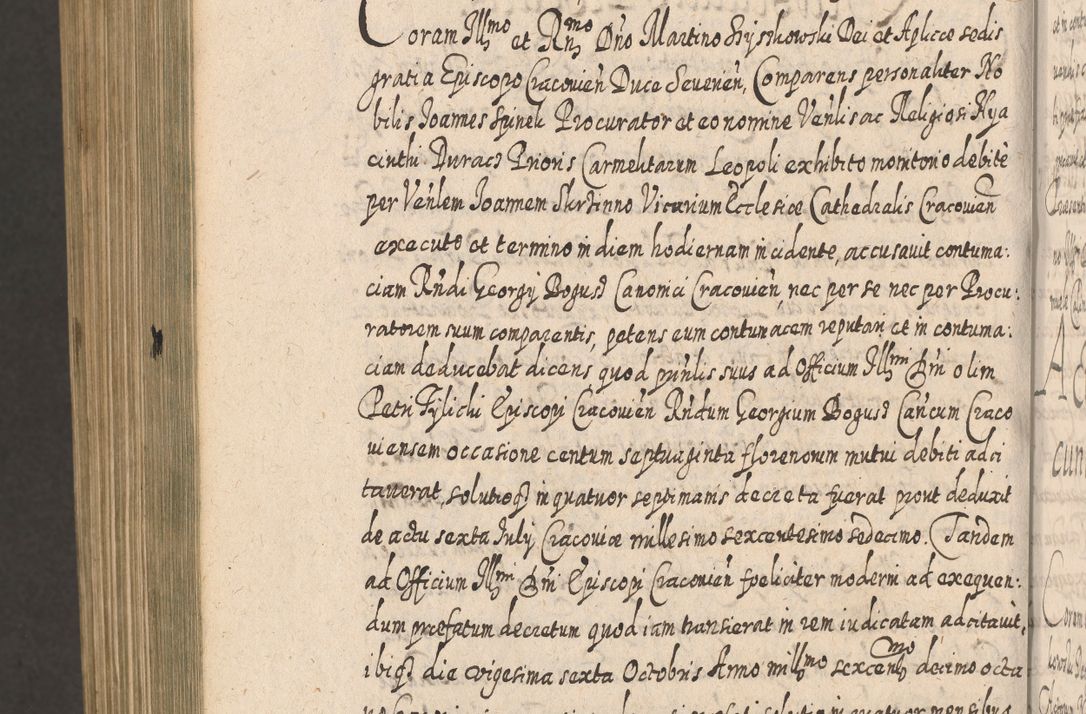 Coram Illmo et Rndmo Dno Martino Szyszkowski Dei et Aplicæ sedis
gratia Episcopo Cracovien Duce Severien, Comparens personaliter No
bilis Joannes Spinek Procurator et eo nomine Venlis ac Religiosi Hya
cinthi Duracz Prioris Carmelitarum Leopoli exhibito monitorio debite
per Venlem Joannem Skrzinno Vicarium Ecclesiæ Cathedralis Cracovien
executo et termino in diem hodiernam incidente, accusavit contuma:
ciam Rndi Georgij Bogusz Canonici Cracovien nec per se nec per Procu:
ratorem suum comparentis, petens eum contumacem reputari et in contuma:
ciam deducebat dicens quod prinlis suus ad Officium Illmi Dni olim
Petri Tylicki Episcopi Cracovien Rndum Georgium Bogusz Cancum Craco
viensem occasione centum septuaginta florenorum mutui debiti adci
taverat, solutioqz in quatuor septimanis decreta fuerat prout deduxit
de actu sexta July Cracoviæ millesimo sexcentesimo sedecimo. Tandem
ad Officium Illmi Dni Episcopi Cracovien fpeliciter moderni ad exequen:
dum præfatum decretum quod iam transierat in rem iudicatam adcitavit,
ibiqz die vigesima sexta Octobris Anno millmo sexcenmo decimo octa